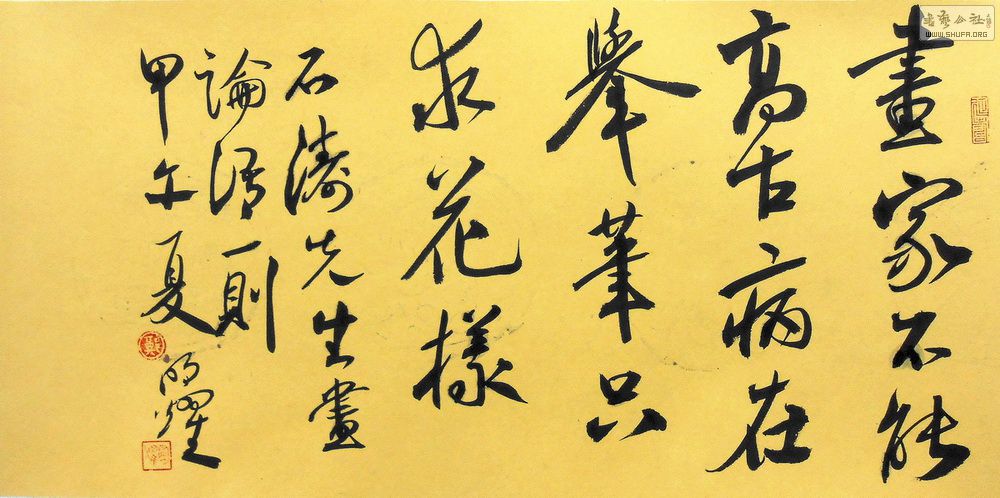 畫家不能
高古病在
舉筆只
求花樣
石濤先生畫
論語一則
甲午夏
明耀
書藝公社
WWW.SHUFA.ORG